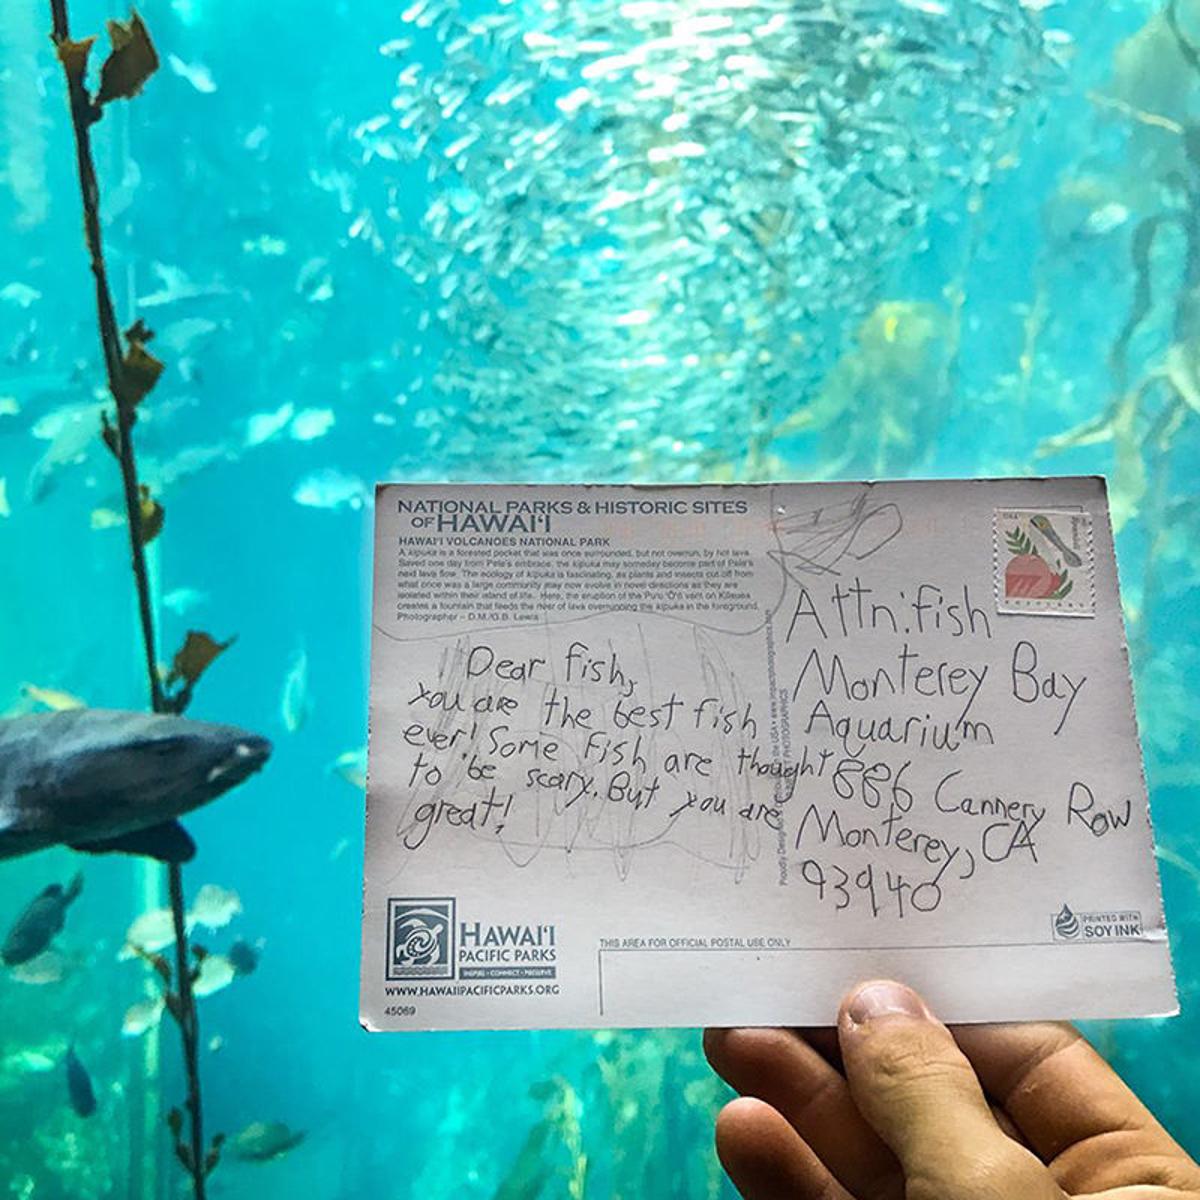 NATIONAL PARKS & HISTORIC SITES
OF HAWAI‘I
HAWAI‘I VOLCANOES NATIONAL PARK
A kipuka is a forested pocket that was once surrounded, but not overrun, by hot lava.
Saved one day from Pele's embrace, the kipuka may someday become part of Pele's
next lava flow. The ecology of kipuka is fascinating, as plants and insects cut off from
what once was a large community may now evolve in novel directions as they are
isolated within their island of life. Here, the eruption of the Pu‘u ‘Ō‘ō vent on Kilauea
creates a fountain that feeds the river of lava overrunning the kipuka in the foreground.
Photographer – D.M./G.B. Lewis
Dear fish,
you are the best fish
ever! Some fish are thought
to be scary. But you are
great!
Attn: fish
Monterey Bay
Aquarium
886 Cannery Row
Monterey, CA
93940
HAWAI‘I
PACIFIC PARKS
INSPIRE • CONNECT • PRESERVE
WWW.HAWAIIPACIFICPARKS.ORG
45069
THIS AREA FOR OFFICIAL POSTAL USE ONLY
PRINTED WITH
SOY INK